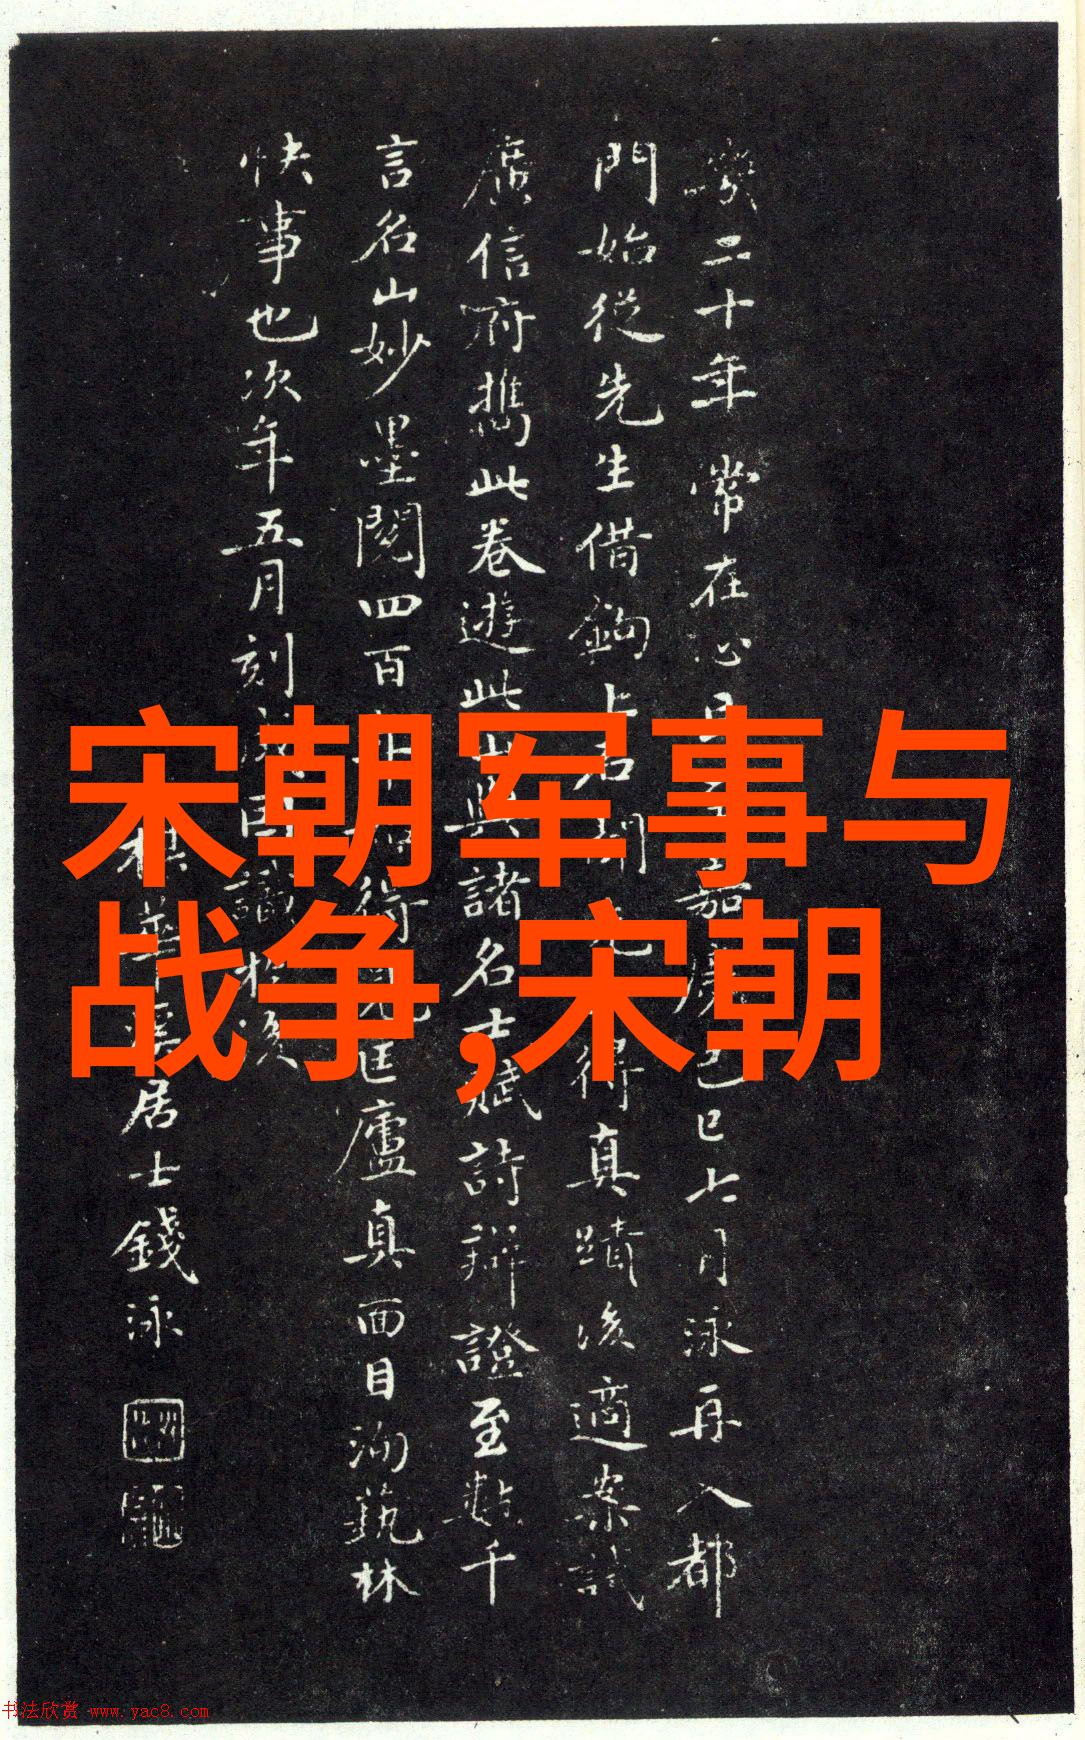 宋朝军事与
战争,宋朝
二十年常在心
嘉慶己巳七月泳再入都
門始從先生借鉤
得真蹟後適案試
廣信府攜此卷遊此
與諸名士賦詩辯證至數千
言名山妙墨閱四百
匡廬真面目洵藝林
快事也次年五月刻
居士錢泳
书法欣赏 www.yac8.com